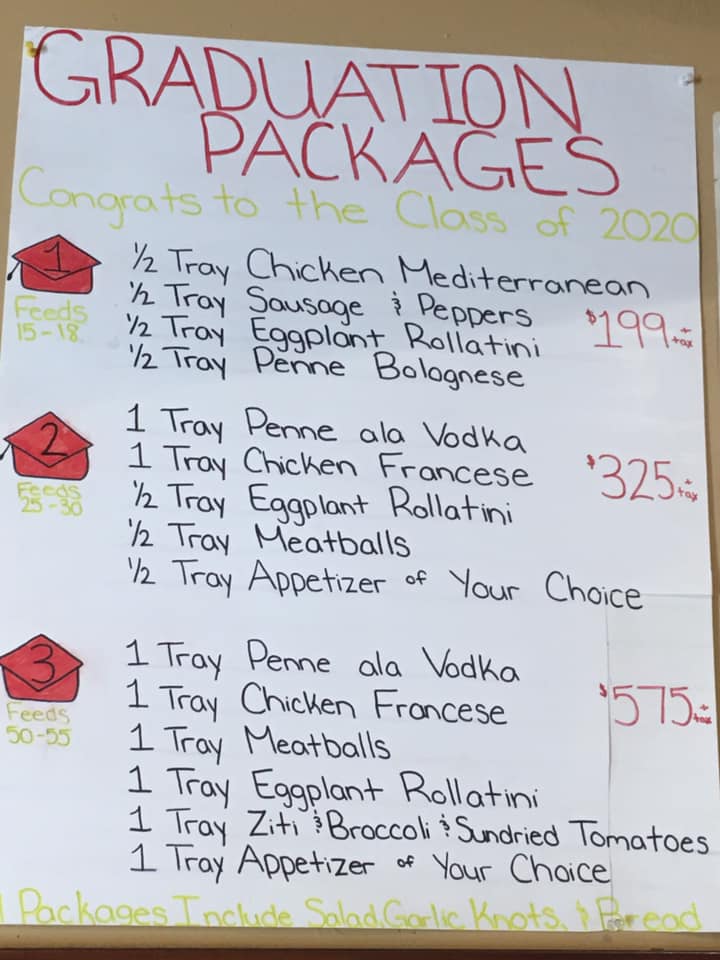 GRADUATION
PACKAGES
Congrats to the Class of 2020
1
Feeds
15-18
½ Tray Chicken Mediterranean
½ Tray Sausage & Peppers
½ Tray Eggplant Rollatini
½ Tray Penne Bolognese
$199 + tax
2
Feeds
25-30
1 Tray Penne ala Vodka
1 Tray Chicken Francese
½ Tray Eggplant Rollatini
½ Tray Meatballs
½ Tray Appetizer of Your Choice
$325 + tax
3
Feeds
50-55
1 Tray Penne ala Vodka
1 Tray Chicken Francese
1 Tray Meatballs
1 Tray Eggplant Rollatini
1 Tray Ziti & Broccoli & Sundried Tomatoes
1 Tray Appetizer of Your Choice
$575 + tax
Packages Include Salad, Garlic Knots, & Bread